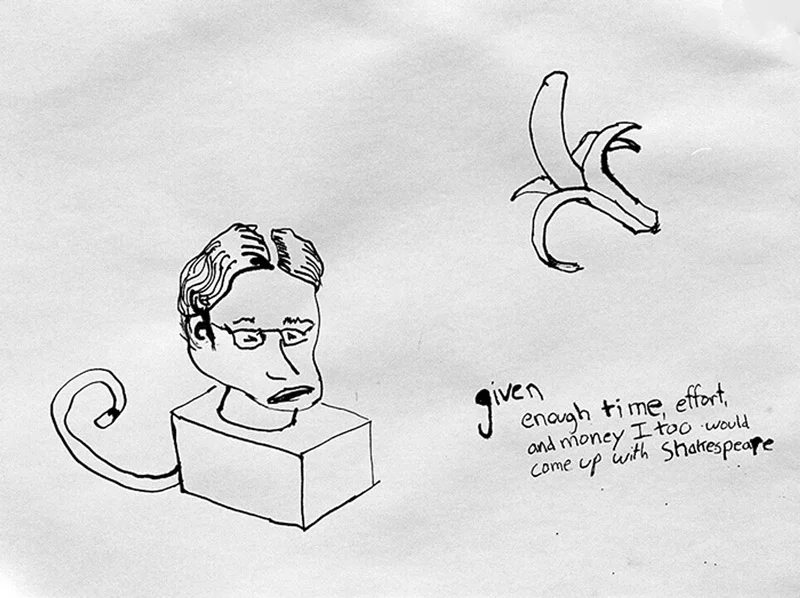 given
enough time, effort,
and money I too would
come up with Shakespeare